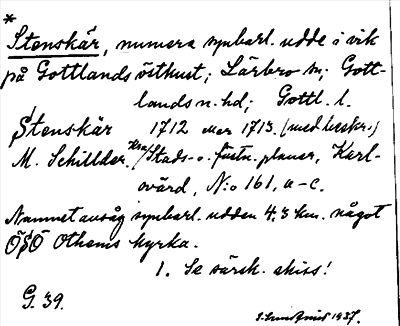 *
Stenskär, numera synbarl. udde i vik
på Gottlands östkust; Lärbro sn; Gott-
lands n. hd; Gottl. l.
Stenskär 1712 Mer 1713. (med beskr.)
M. Schillder. Kra/Stads- o. fästn. planer, Karl-
svärd, N:o 161, a-c.
Namnet avsåg synbarl. udden 4,3 km. något
ÖSÖ Othems kyrka.
1. Se särsk. skiss!
G. 39.
1937.